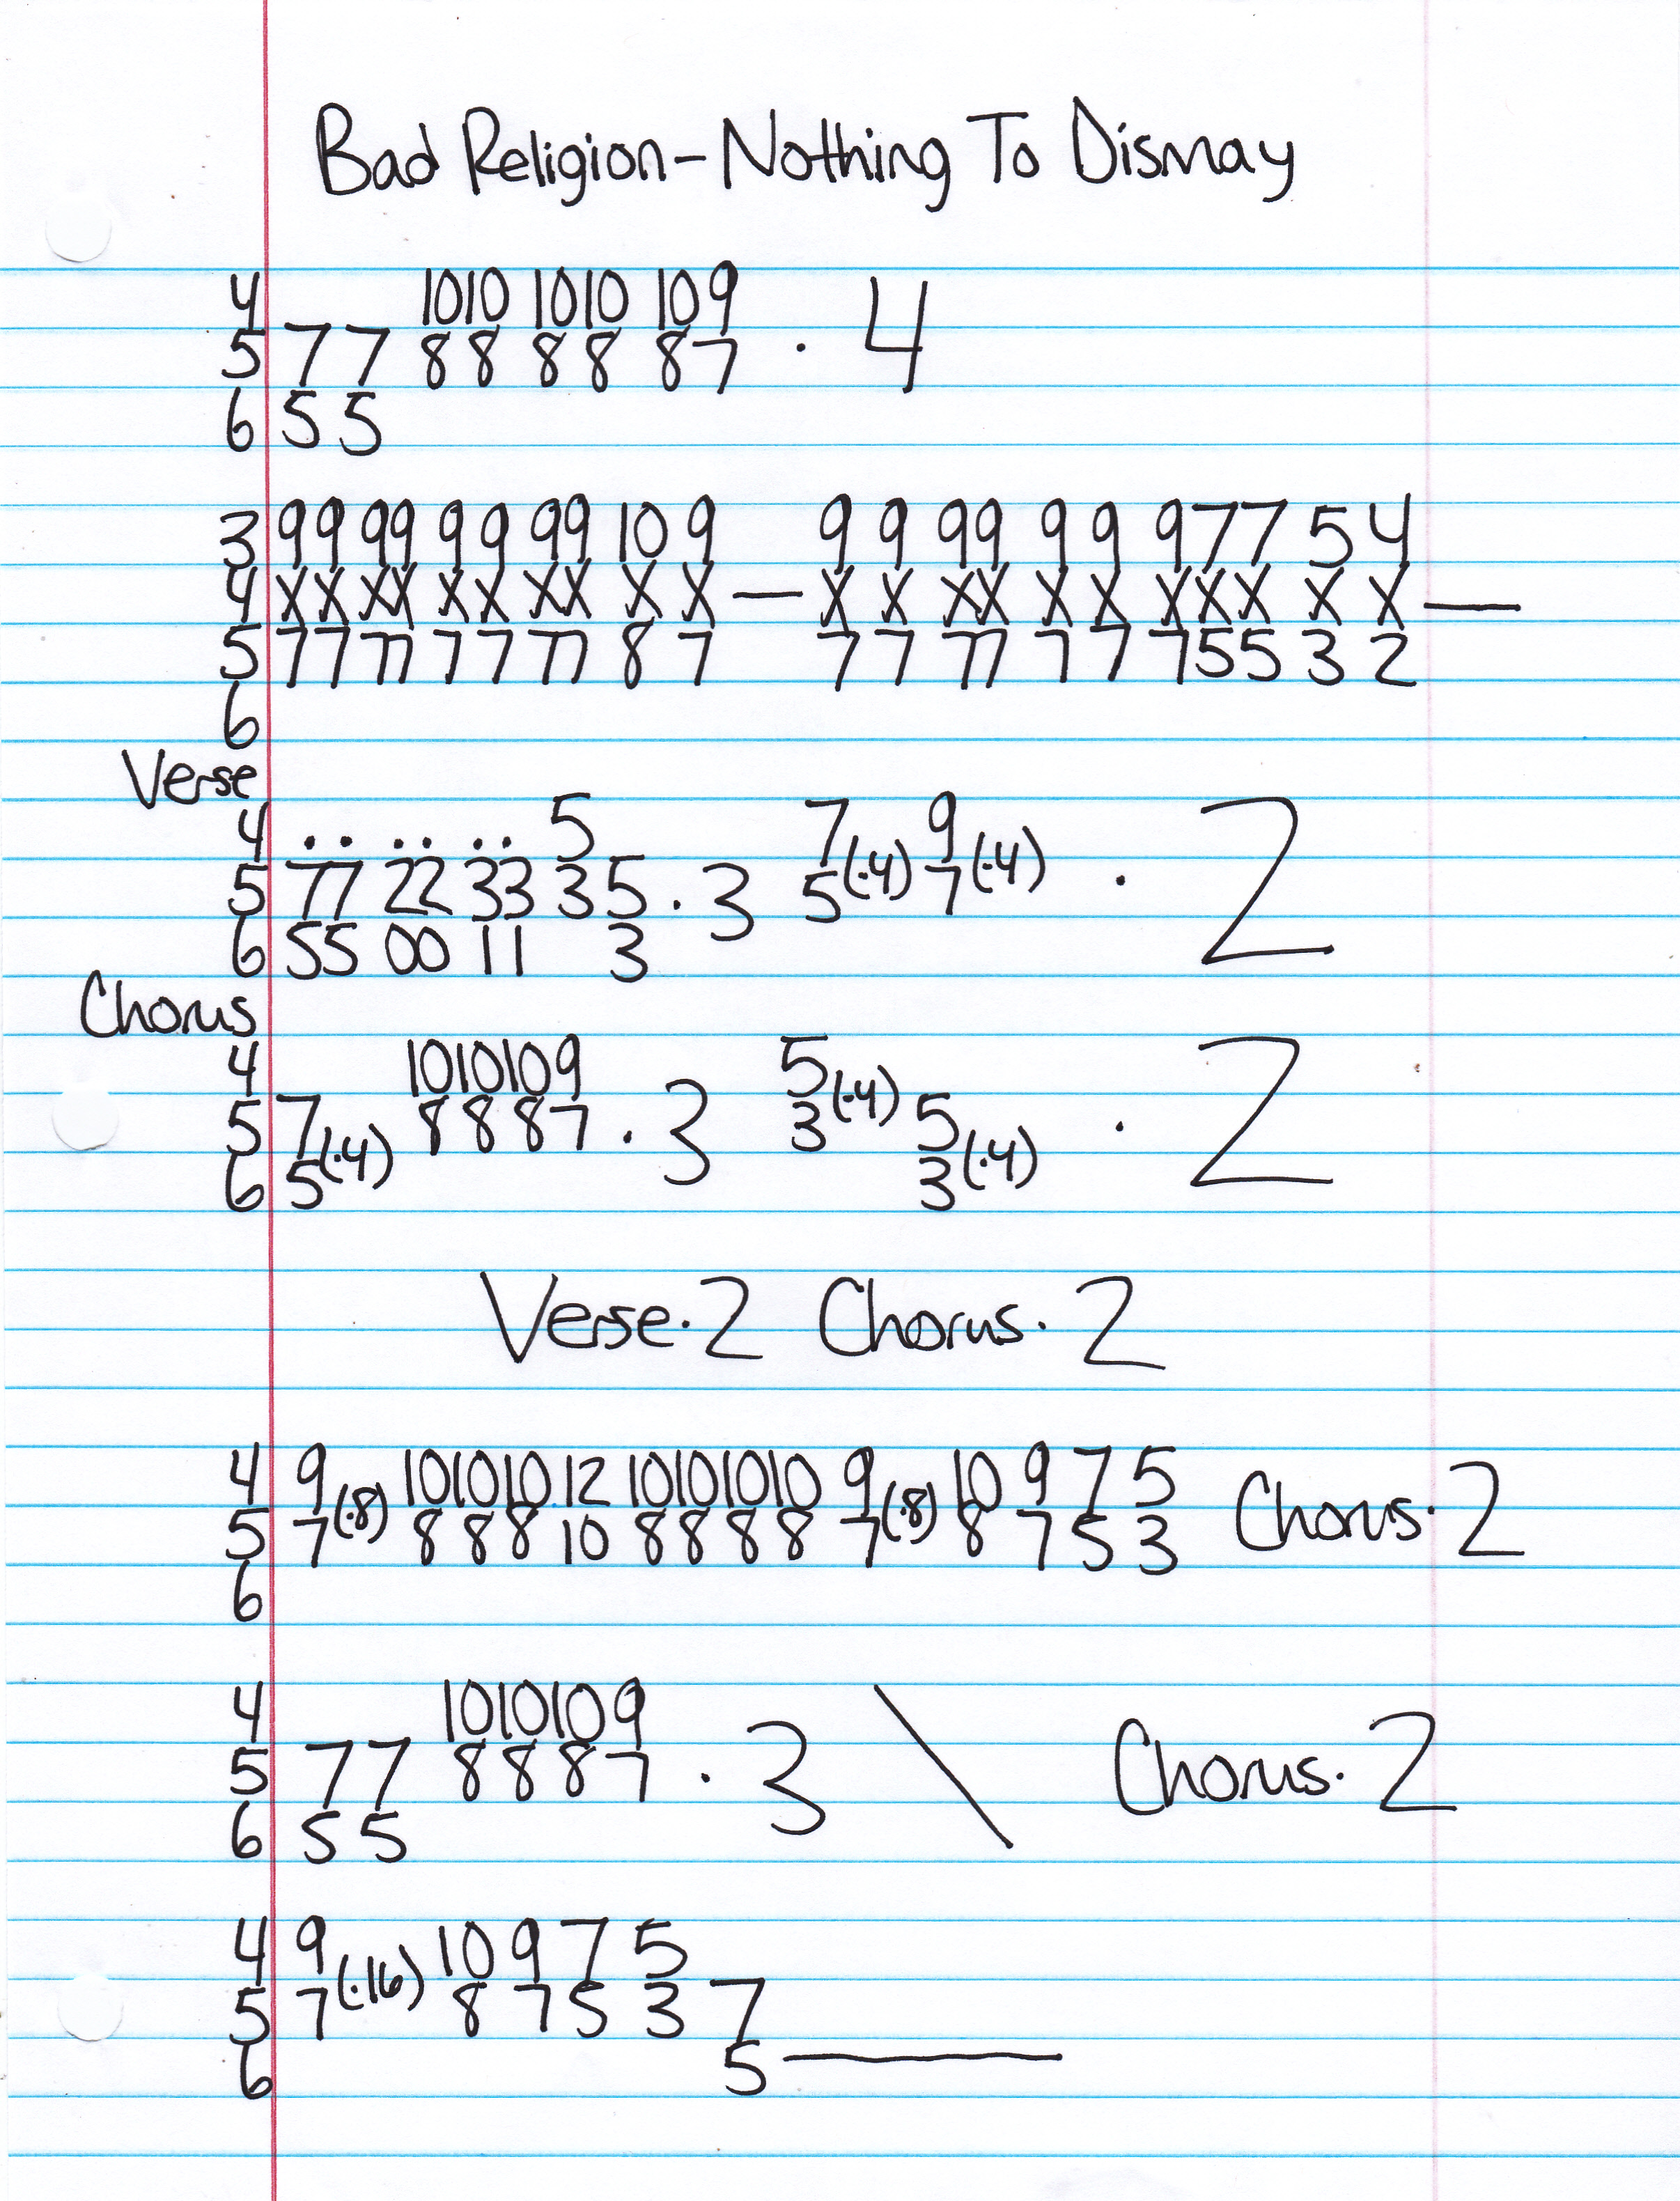 Bad Religion - Nothing To Dismay
4 1010 1010 109
5 77 88 88 87 · 4
6 55
3 99 99 99 99 10 9 9 9 99 9 9 977 5 4
4 XX XX XX XX X X — X X XX X X XXX X X —
5 77 77 77 77 8 7 7 7 77 7 7 755 3 2
6
Verse
4 .. .. .. 5 7(·4) 9(·4)
5 77 22 33 35 · 3 5 7 · 2
6 55 00 11 3
Chorus
4 1010109 5(·4)
5 7(·4) 8887 · 3 3 5(·4) · 2
6 5 3
Verse · 2 Chorus · 2
4 9(·8) 101010 12 10101010 9(·8) 10 9 7 5 Chorus · 2
5 7 888 10 8888 7 8 7 5 3
6
4 1010109
5 77 8887 · 3 \ Chorus · 2
6 55
4 9(·16) 10 9 7 5
5 7 8 7 5 3 7
6 5 —